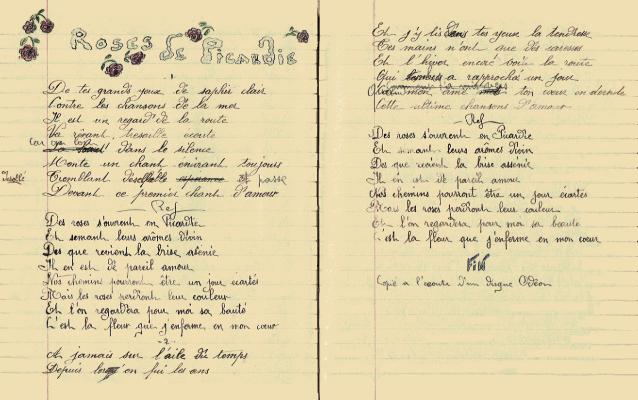 Roses De Picardie
De tes grands yeux de saphir clair
Contre les chansons de la mer
Il est un regard de la route
Va rêvant, tressaille écoute
Car on dans le silence
Monte un chant enivrant toujours
Tremblant passe
Devant ce premier chant d'amour
Ref
Des roses s'ouvrent en Picardie
Et semant leurs arômes divin
Des que revient la brise
Il en est de pareil amour
Nos chemins pourront être un jour écartés
Mais les roses perdront leur couleur
Et l'on regardera pour moi sa bauté
C'est la fleur que j'enferme en mon coeur
-2-
A jamais sur l'aile du temps
Depuis en fui les ans
Et j'y lis dans tes yeux la tendresse
Tes mains n'ont que des caresses
Et l'hiver encore voila la route
Qui a rapproché un jour
mon âme ton coeur
Cette ultime chansons d'amour
Ref
Des roses s'ouvrent en Picardie
Et semant leurs arômes divin
Des que revient la brise
Il en est de pareil amour
Nos chemins pourront être un jour écartés
Mais les roses perdront leur couleur
Et l'on regardera pour moi sa beauté
C'est la fleur que j'enferme en mon coeur
FIN
Copié a l'écoute d'un disque Odéon